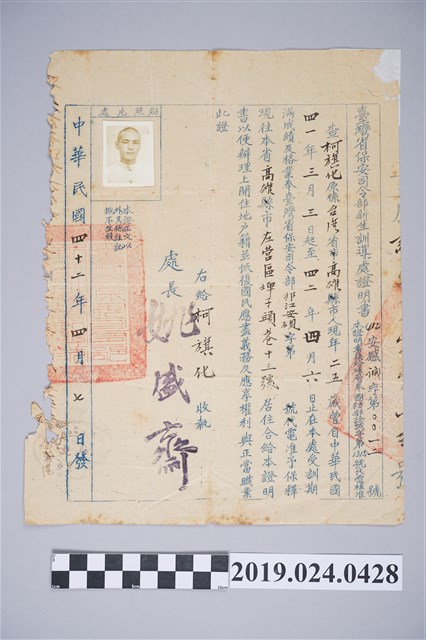 臺灣省保安司令部新生訓導處證明書
安感誠字第〇〇一二號
查柯旗化原係台灣省市高雄縣市人現年二五歲曾自中華民國
四一年三月三日起至四二年四月六日止在本處受訓期
滿成績及格業奉臺灣省保安司令部 字第 號代電准予保釋
現往本省高雄縣市左營區埤子頭巷十三號居住合給本證明
書以便辦理上開住地戶籍並恢復國民應盡義務及應享權利與正當職業
此證
右給柯旗化收執
處長
姚盛齋
貼照片處
本證正文以
外其他註記
概不生效
中華民國四十二年四月七日發
2019.024.0428